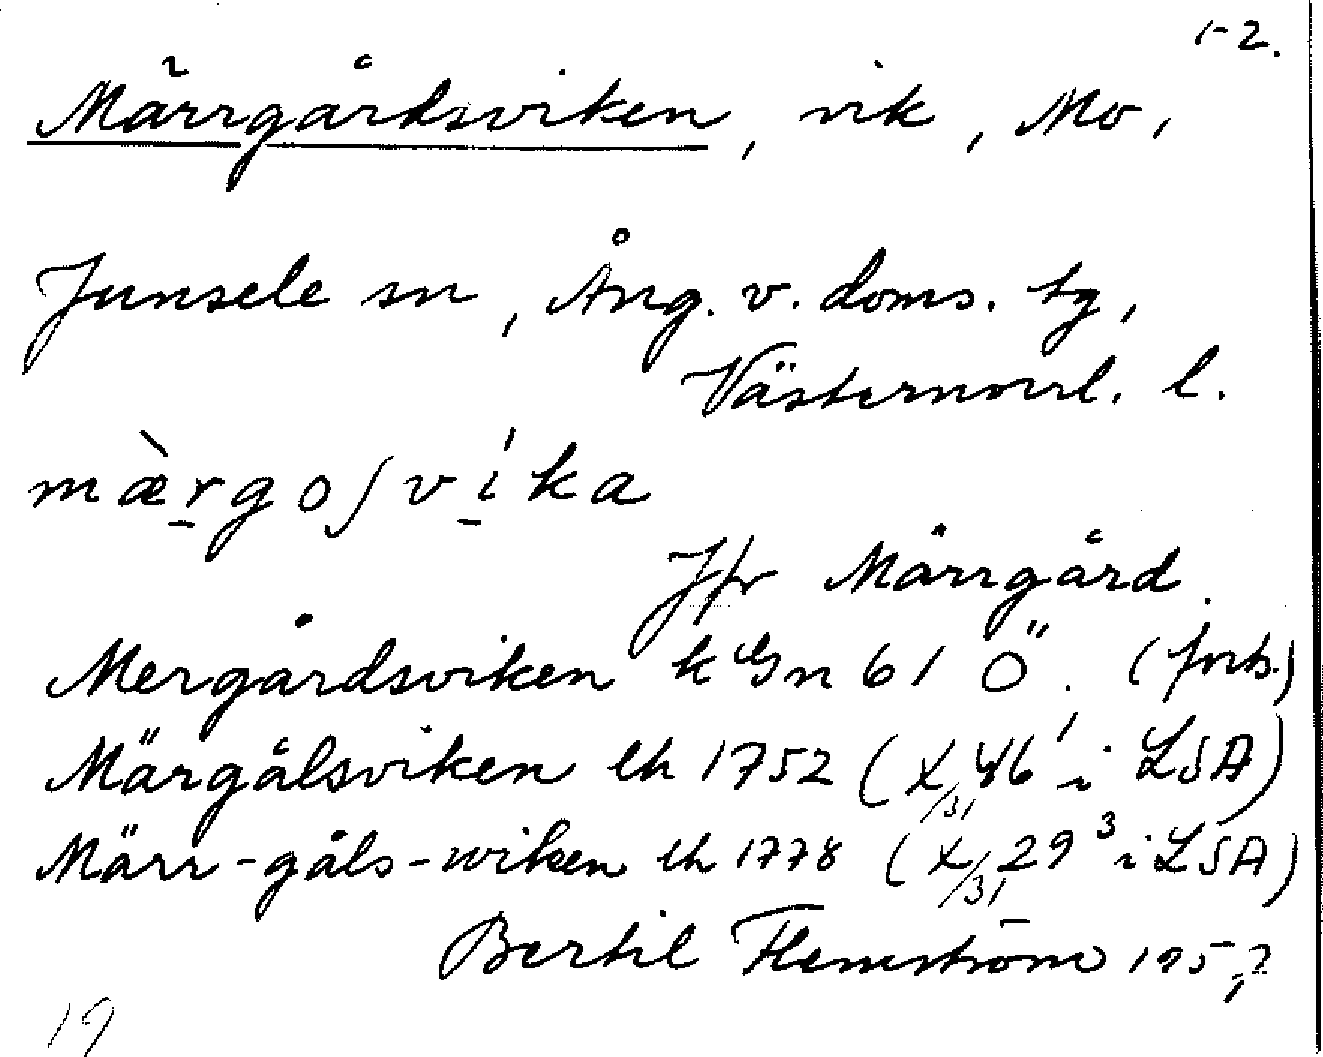 1-2.
Märrgårdsviken, vik, Mo,
Junsele sn, Ång. v. doms. tg,
Västernorrl. l.
mæ̀rgoʃvíka
Jfr Märrgård.
Mergårdsviken k Gn 61 Ö. (forts.)
Märgålsviken lh 1752 (X/31 46¹ i LSA)
Märr-gåls-wiken lh 1778 (X/31 29³ i LSA)
Bertil Flemström
19